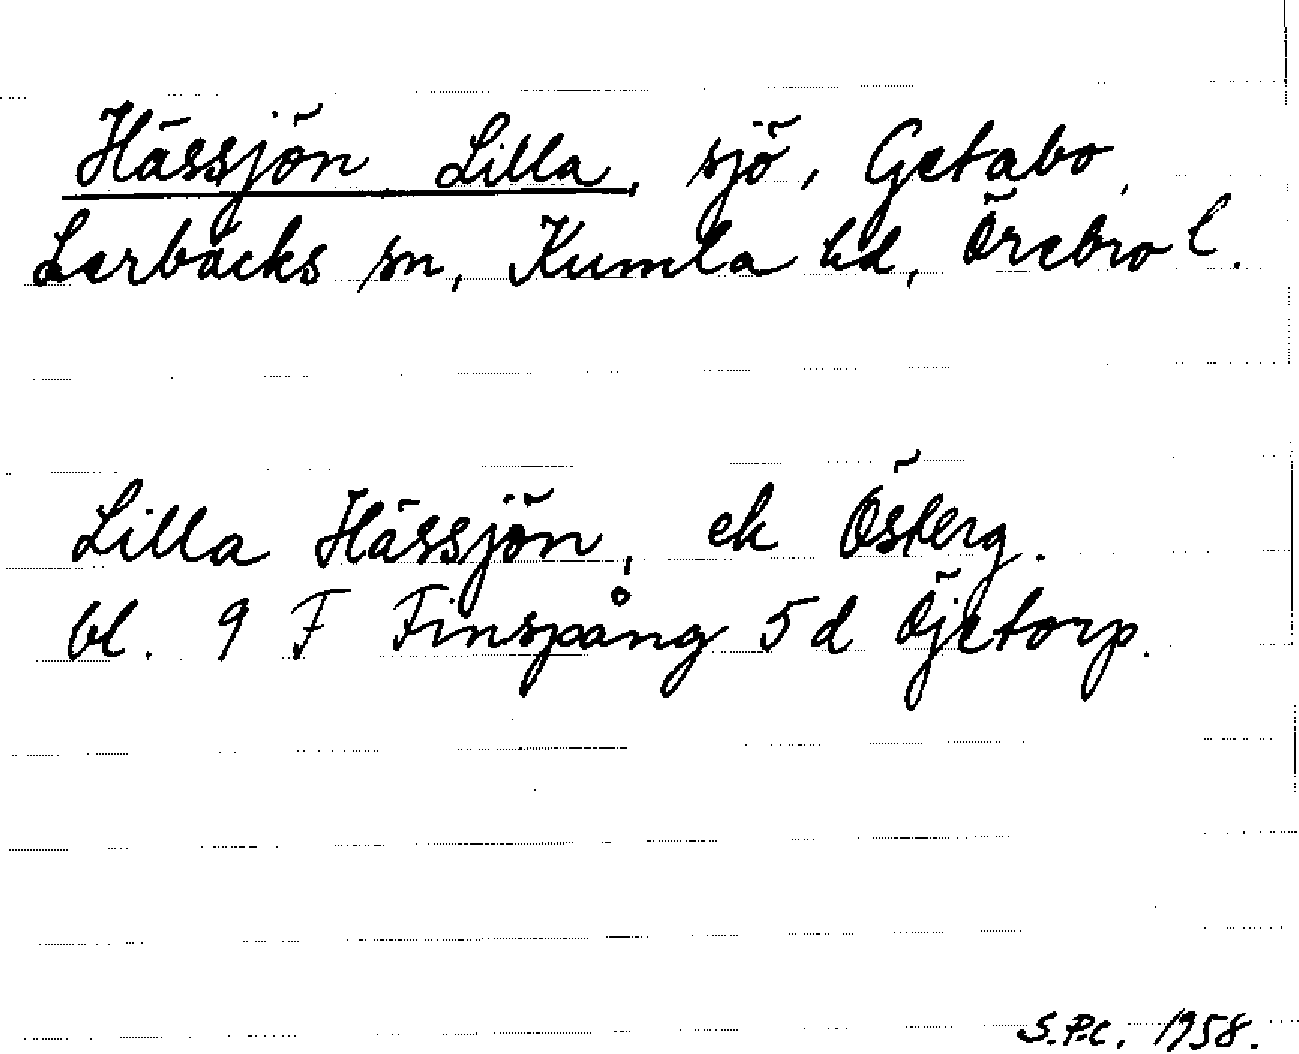 Hässjön Lilla, sjö, Getabo,
Lerbäcks sn, Kumla hd, Örebro l.
Lilla Hässjön, ek Österg.
bl. 9 F Finspång 5d Öjetorp.
S.P.C. 1958.